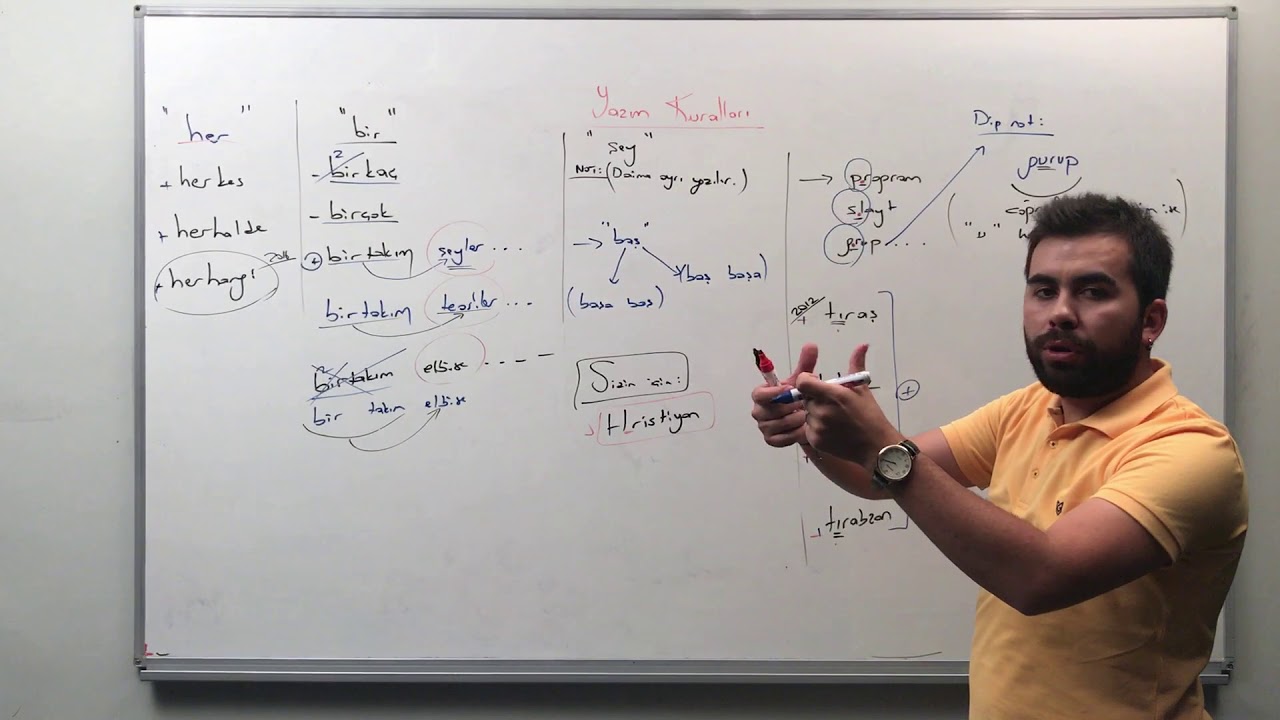 Yazım Kuralları
"her"
+ herkes
+ herhalde
+ herhangi
"bir"
- birkaç
- birçok
+ birtakım şeyler ...
birtakım teoriler ...
birtakım elbise ----
bir takım elbise
"şey"
NOT: (Daima ayrı yazılır.)
→ "baş"
(başa baş) (baş başa)
Sizin için:
Hristiyan
→ program
slayt
gurup ....
2012
+ tıraş
+ tırabzan
Dipnot:
purup